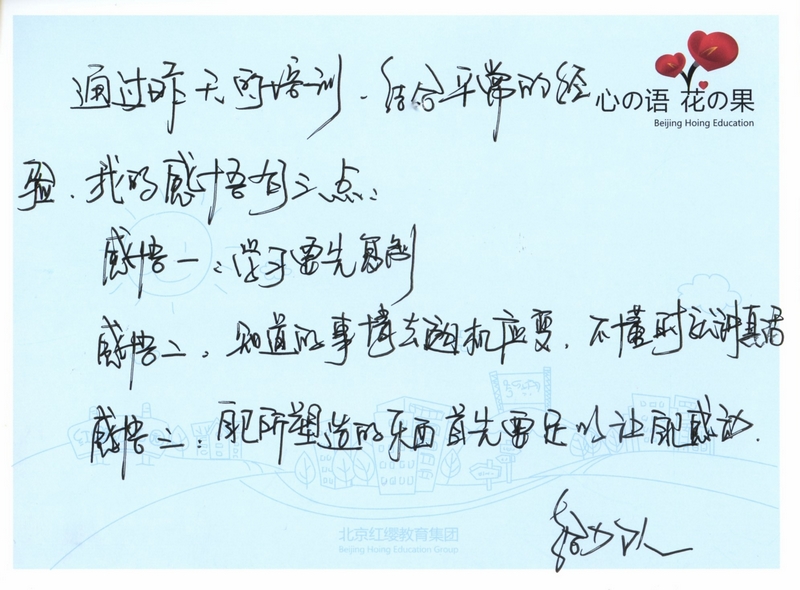 心の语 花の果
Beijing Hoing Education
通过昨天的培训、结合平常的经
验、我的感悟有三点：
感悟一：学习要先复制
感悟二、知道的事情去随机应变，不懂时
感悟三：所塑造的东西首先要足以让感动.
北京红缨教育集团
Beijing Hoing Education Group